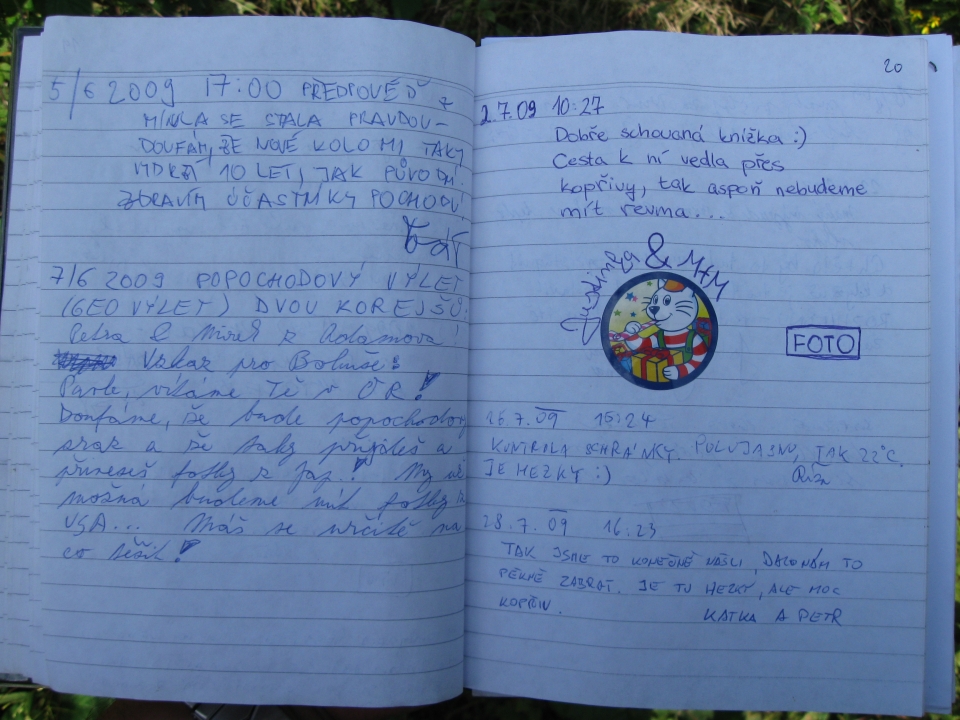 5/6 2009 17:00 PŘEDPOVĚĎ
MINULA SE STALA PRAVDOU -
DOUFÁM, ŽE NOVÉ KOLO MI TAKY
VYDRŽÍ 10 LET, JAK PŮVODNÍ.
ZDRAVÍM ÚČASTNÍKY POCHODU!
7/6 2009 POPOCHODOVÝ VÝLET
(GEO VÝLET) DVOU KOREJŠŮ:
Petra & Mirek z Adamova!
Vzkaz pro Bohuše:
Pavle, vítáme Tě v ČR!
Doufáme, že bude popochodový
sraz a že taky přijdeš a
přineseš fotky z Jap.! My už
možná budeme mít fotky z
USA... Máš se určitě na
co těšit!
20
2.7.09 10:27
Dobře schovaná knížka :)
Cesta k ní vedla přes
kopřivy, tak aspoň nebudeme
mít revma...
& MfM
FOTO
26.7.09 15:24
KONTROLA SCHRÁNKY. POLOJASNO, TAK 22°C.
JE HEZKY :)
Ríša
28.7.09 16:23
TAK JSME TO KONEČNĚ NAŠLI, DALO NÁM TO
PĚKNĚ ZABRAT. JE TU HEZKY, ALE MOC
KOPŘIV. KATKA A PETR